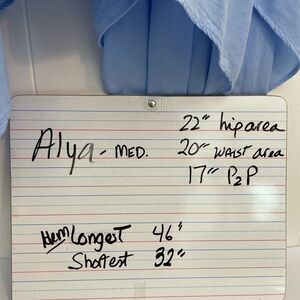 22" hip area
Alya - MED.
20" WAIST area
17" P2P
Hem Longest 46"
Shortest 32"